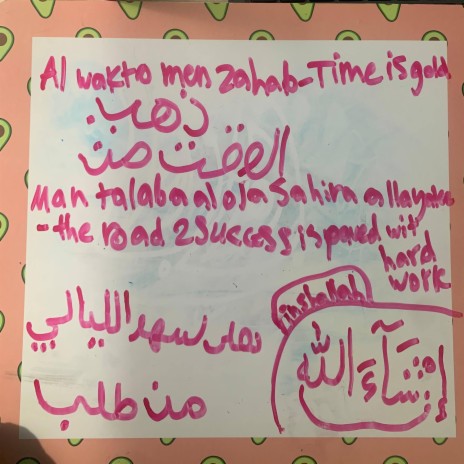 Al wakto men zahab-Time is gold
ذهب.
الوقت من
Man talaba alola Sahira
-the road 2 success is paved wit
hard
work
inshallah
سهر الليالي
إنشآءَ اللّه
من طلب